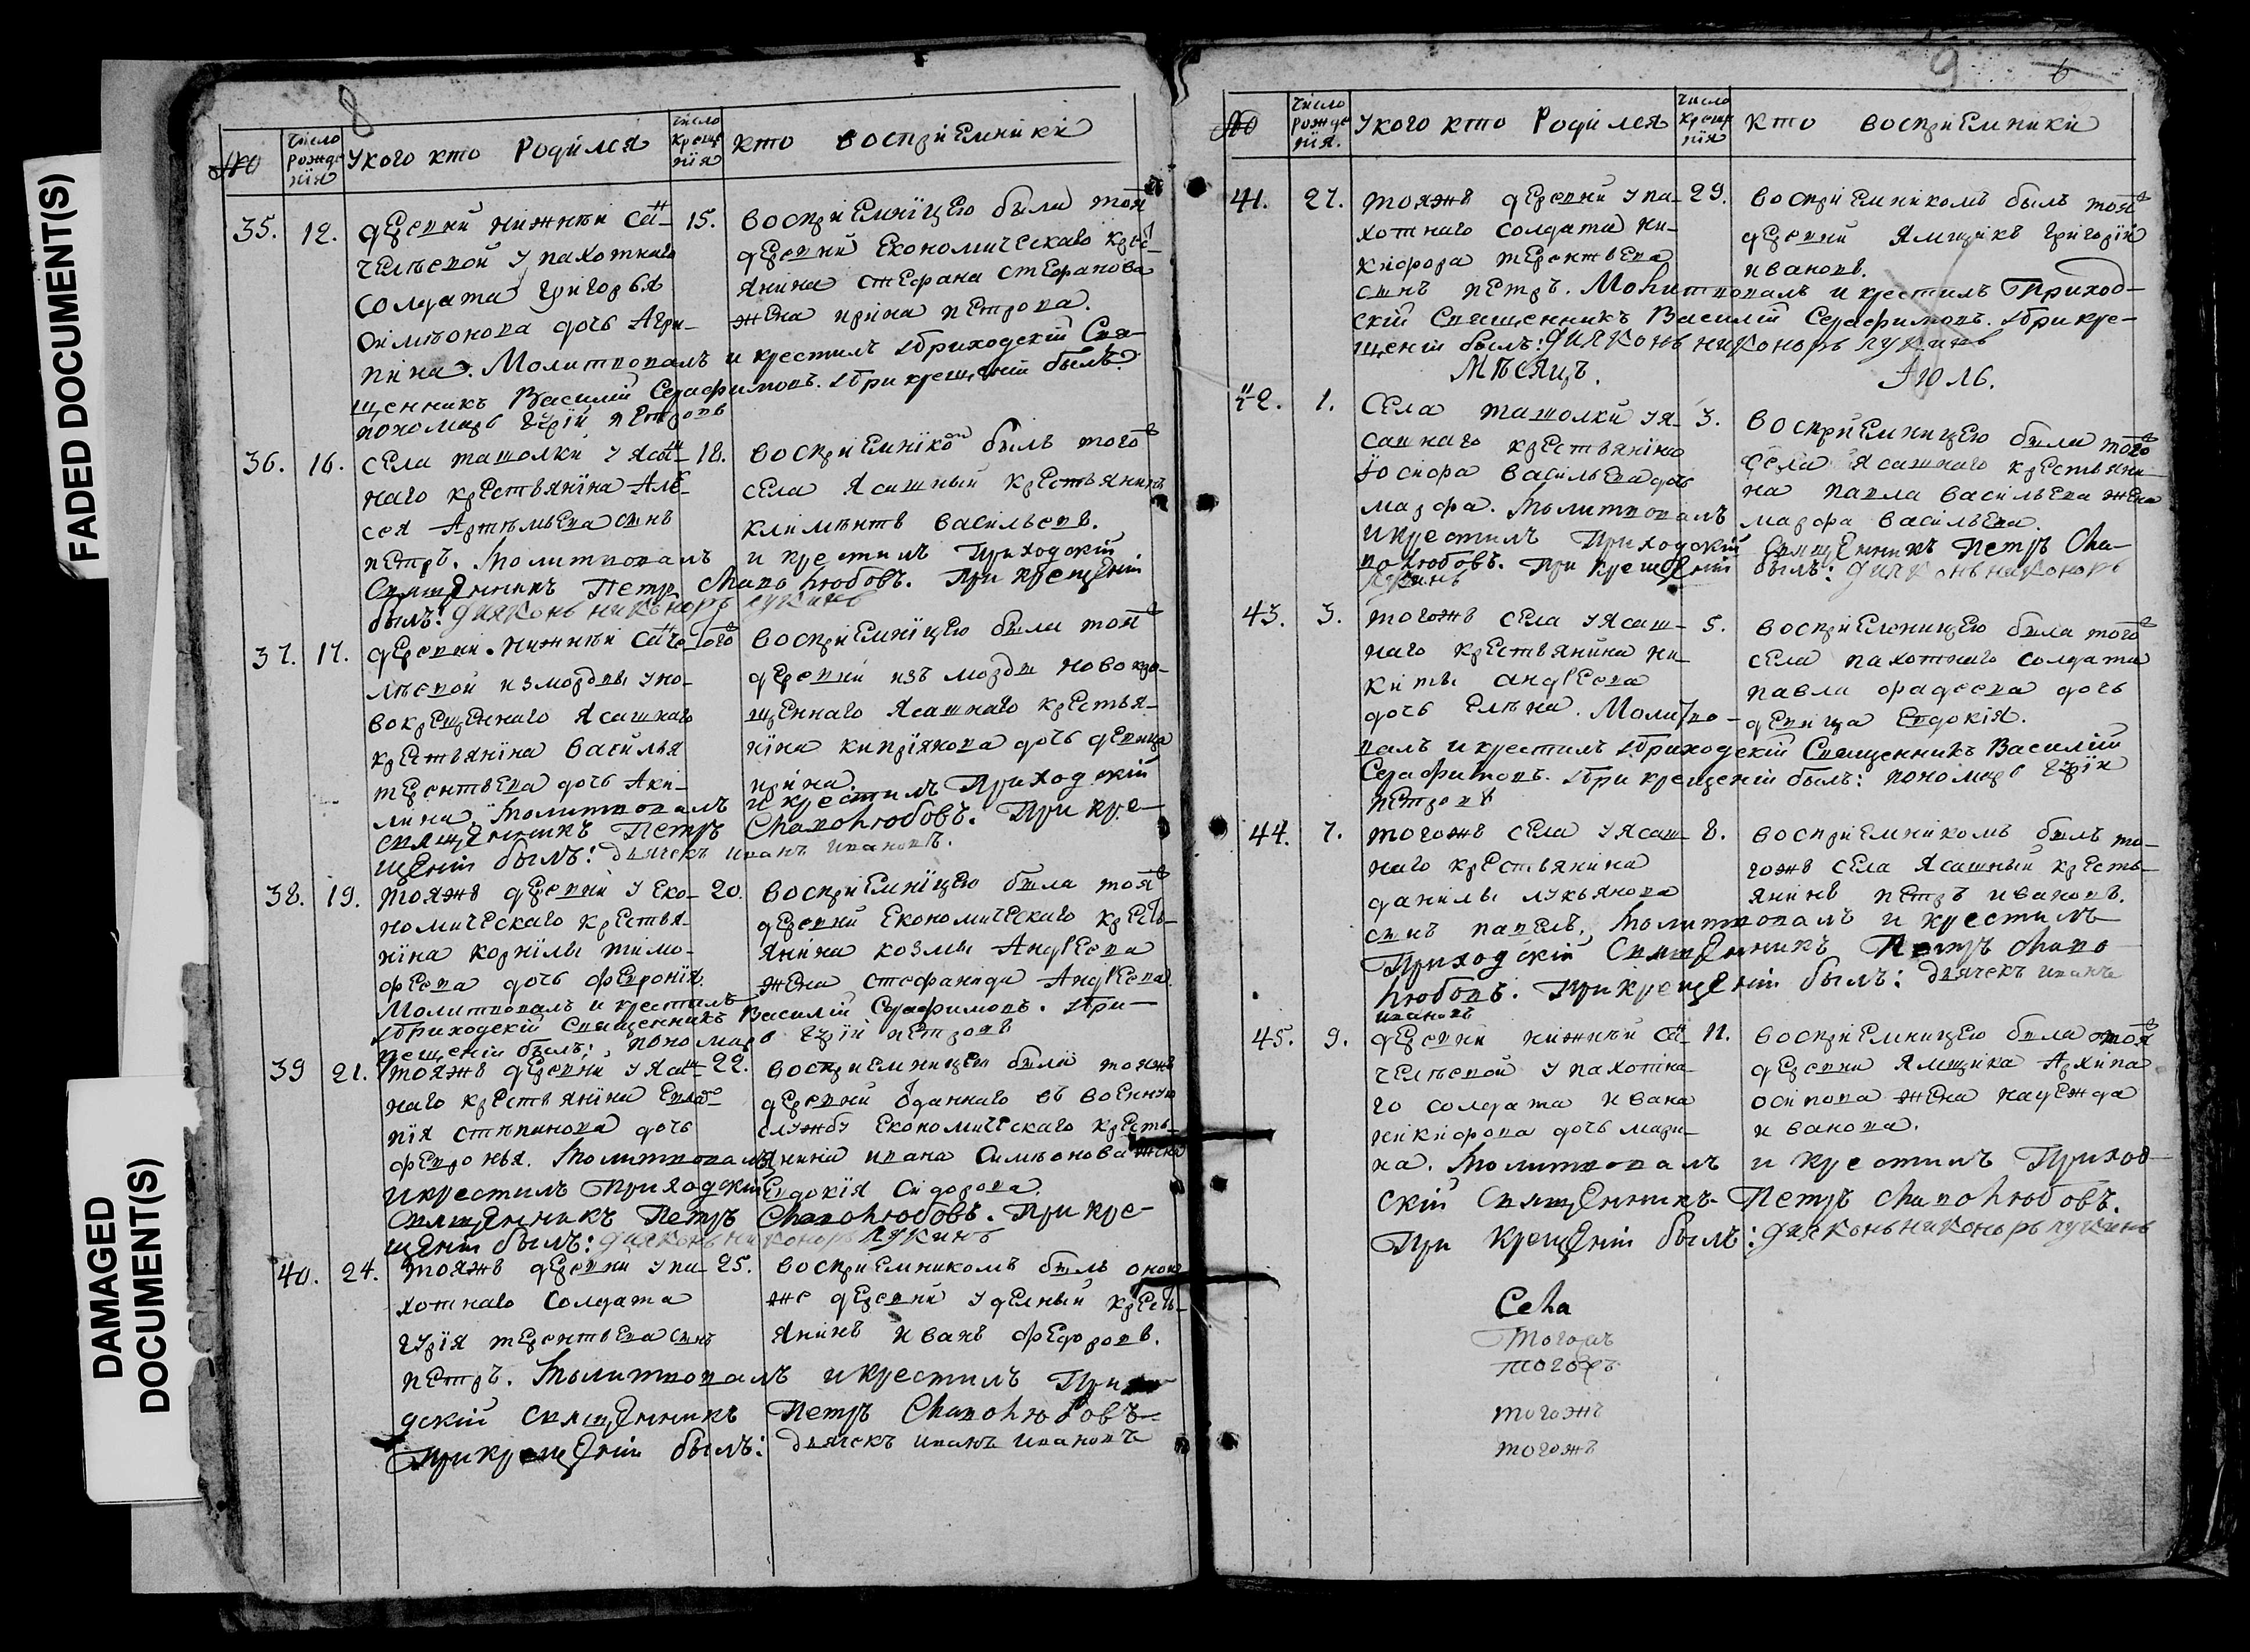 FADED DOCUMENT(S)
DAMAGED
DOCUMENT(S)
8
№
число рожденія
У кого кто родился
число крещенія
кто воспріемники
35. 12.
деревни нижней сан-
челѣевой у пахотнаго
солдата григорья
симеонова дочь Агри-
пина. Молитвовалъ и крестилъ Приходскій Свя-
щенникъ Василій Серафимовъ. При крещеніи былъ:
пономарь гурій петровъ
15.
воспріемницею была тояж
деревни Економическаго крес-
янина стефана стефанова
жена ирина петрова.
36. 16.
села ташолки у ясаш-
наго крестьянина Але-
сея Артемьева сынъ
петръ. Молитвовалъ и крестилъ Приходскій
Священникъ Петръ Славолюбовъ. При крещеніи
былъ: дияконъ никоноръ лукинъ
18.
воспріемникомъ былъ тогож
села Ясашный крестьянинъ
климентъ васильевъ.
37. 17.
деревни нижней санче-
лѣевой из мордвы у но-
вокрещеннаго Ясашнаго
крестьянина василья
терентьева дочь Аки-
лина. Молитвовалъ и крестилъ Приходскій
священникъ Петръ Славолюбовъ. При кре-
щеніи былъ: дьячекъ иванъ ивановъ.
тогож
воспріемницею была тояж
деревни изъ мордвы новокре-
щеннаго Ясашнаго крестья-
нина кипріянова дочь девица
ирина.
38. 19.
тояжъ деревни у Еко-
номическаго крестья-
нина корнилы тимо-
феева дочь феврония.
Молитвовалъ и крестилъ
Приходскій Священникъ Василій Серафимовъ. При
крещеніи былъ: пономарь гурій петровъ
20.
воспріемницею была тояж
деревни Економическаго кресть-
янина козмы Андреева
жена стефанида Андреева.
39 21.
тояжъ деревни у ясаш-
наго крестьянина Евдо-
кия степанова дочь
февронья. Молитвовалъ
и крестилъ Приходскій
Священникъ Петръ Славолюбовъ. При кре-
щеніи былъ: дияконъ никоноръ лукинъ
22.
воспріемницею была тояжъ
деревни отданнаго въ военную
службу Економическаго кресть-
янина ивана Симеонова жена
Евдокія Сидорова.
40. 24.
тояжъ деревни у па-
хотнаго солдата
гурія терентьева сынъ
петръ. Молитвовалъ и крестилъ Прихо-
дскій священникъ Петръ Славолюбовъ
При крещеніи былъ: дьячекъ иванъ ивановъ
25.
воспріемникомъ былъ оной
же деревни удельный кресть-
янинъ иванъ федоровъ.
9
6
№
число рожденія.
У кого кто родился
число крещенія
кто воспріемники
41. 27.
тояжъ деревни у па-
хотнаго солдата ни-
кифора терентьева
сынъ петръ. Молитвовалъ и крестилъ Приход-
скій Священникъ Василій Серафимовъ. При кре-
щеніи былъ: дияконъ никоноръ лукинъ
29.
воспріемникомъ былъ тояж
деревни ямщикъ григорій
ивановъ.
Мѣсяцъ. Июль.
42. 1.
села ташолки у я-
сашнаго крестьянина
іосифа васильева дочь
марфа. Молитвовалъ
и крестилъ Приходскій Священникъ Петръ Сла-
волюбовъ. При крещеніи былъ: дияконъ никоноръ
лукинъ
3.
воспріемницею была тогож
села Ясашнаго крестьяни-
на павла васильева жена
марфа васильева.
43. 3.
тогожъ села у ясаш-
наго крестьянина ни-
киты андреева
дочь елена. Молитво-
валъ и крестилъ Приходскій Священникъ Василій
Серафимовъ. При крещеніи былъ: пономарь гурій
петровъ
5.
воспріемницею была тогож
села пахотнаго солдата
павла фадеева дочь
девица евдокія.
44. 7.
тогожъ села у ясаш-
наго крестьянина
данилы лукьянова
сынъ павелъ. Молитвовалъ и крестилъ
Приходскій Священникъ Петръ Славо-
любовъ. При крещеніи былъ: дьячекъ иванъ
ивановъ
8.
воспріемникомъ былъ то-
гожъ села Ясашный кресть-
янинъ петръ ивановъ.
45. 9.
деревни нижней сан-
челѣевой у пахотна-
го солдата ивана
никифорова дочь мари-
на. Молитвовалъ и крестилъ Приход-
скій Священникъ Петръ Славолюбовъ.
При крещеніи былъ: дияконъ никоноръ лукинъ
11.
воспріемницею была тояж
деревни Ямщика Архипа
осипова жена надежда
иванова.
Села
тогожъ
тогожъ
тогожъ
тогожъ